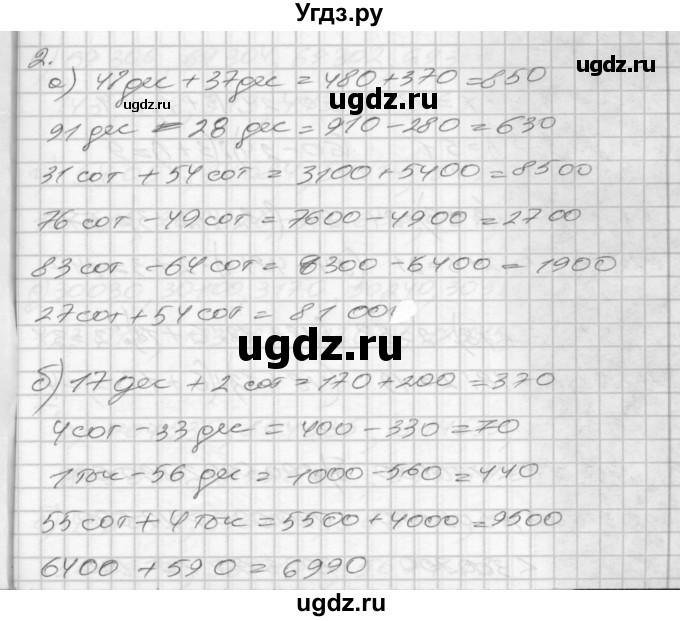 Угдз.ру
2.
а) 48дес + 37дес = 480+370 =850
ugdz.ru
ugdz.ru
91 дес - 28 дес = 910-280 = 630
31 сот + 54 сот = 3100 + 5400 = 8500
76 сот - 49 сот = 7600 - 4900 = 2700
83 сот - 64 сот = 8300 - 6400 = 1900
27 сот + 54 сот = 81
ugdz.ru
б) 17 дес + 2 сот = 170 + 200 = 370
4 сот - 33 дес = 400 - 330 = 70
1 тыс - 56 дес = 1000 - 560 = 440
55 сот + 4 тыс = 5500 + 4000 = 9500
6400 + 590 = 6990
ugdz.ru
ugdz.ru